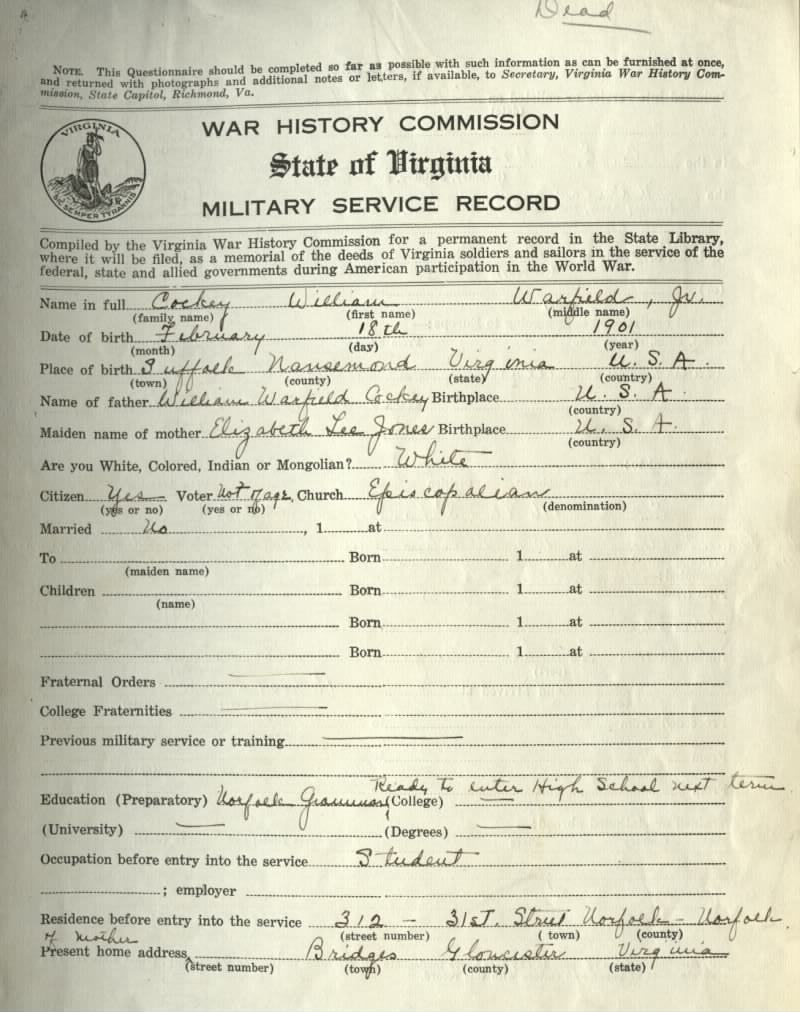 Dead
NOTE. This Questionnaire should be completed so far as possible with such information as can be furnished at once,
and returned with photographs and additional notes or letters, if available, to Secretary, Virginia War History Com-
mission, State Capitol, Richmond, Va.
VIRGINIA
SIC SEMPER TYRANNIS
WAR HISTORY COMMISSION
State of Virginia
MILITARY SERVICE RECORD
Compiled by the Virginia War History Commission for a permanent record in the State Library,
where it will be filed, as a memorial of the deeds of Virginia soldiers and sailors in the service of the
federal, state and allied governments during American participation in the World War.
Name in full Cockey William Warfield, Jr.
(family name) (first name) (middle name)
Date of birth February 18th 1901
(month) (day) (year)
Place of birth Suffolk Nansemond Virginia U. S. A.
(town) (county) (state) (country)
Name of father William Warfield Cockey Birthplace U. S. A.
(country)
Maiden name of mother Elizabeth Lee Jones Birthplace U. S. A.
(country)
Are you White, Colored, Indian or Mongolian? White
Citizen Yes Voter Not of age Church Episcopalian
(yes or no) (yes or no) (denomination)
Married No, 1 at
To Born 1 at
(maiden name)
Children Born 1 at
(name)
Born 1 at
Born 1 at
Fraternal Orders
College Fraternities
Previous military service or training
Ready to enter High School next term.
Education (Preparatory) Norfolk Grammar (College)
(University) (Degrees)
Occupation before entry into the service Student
; employer
Residence before entry into the service 312 - 31st. Street Norfolk - Norfolk
(street number) (town) (county)
of mother
Present home address Bridges Gloucester Virginia
(street number) (town) (county) (state)